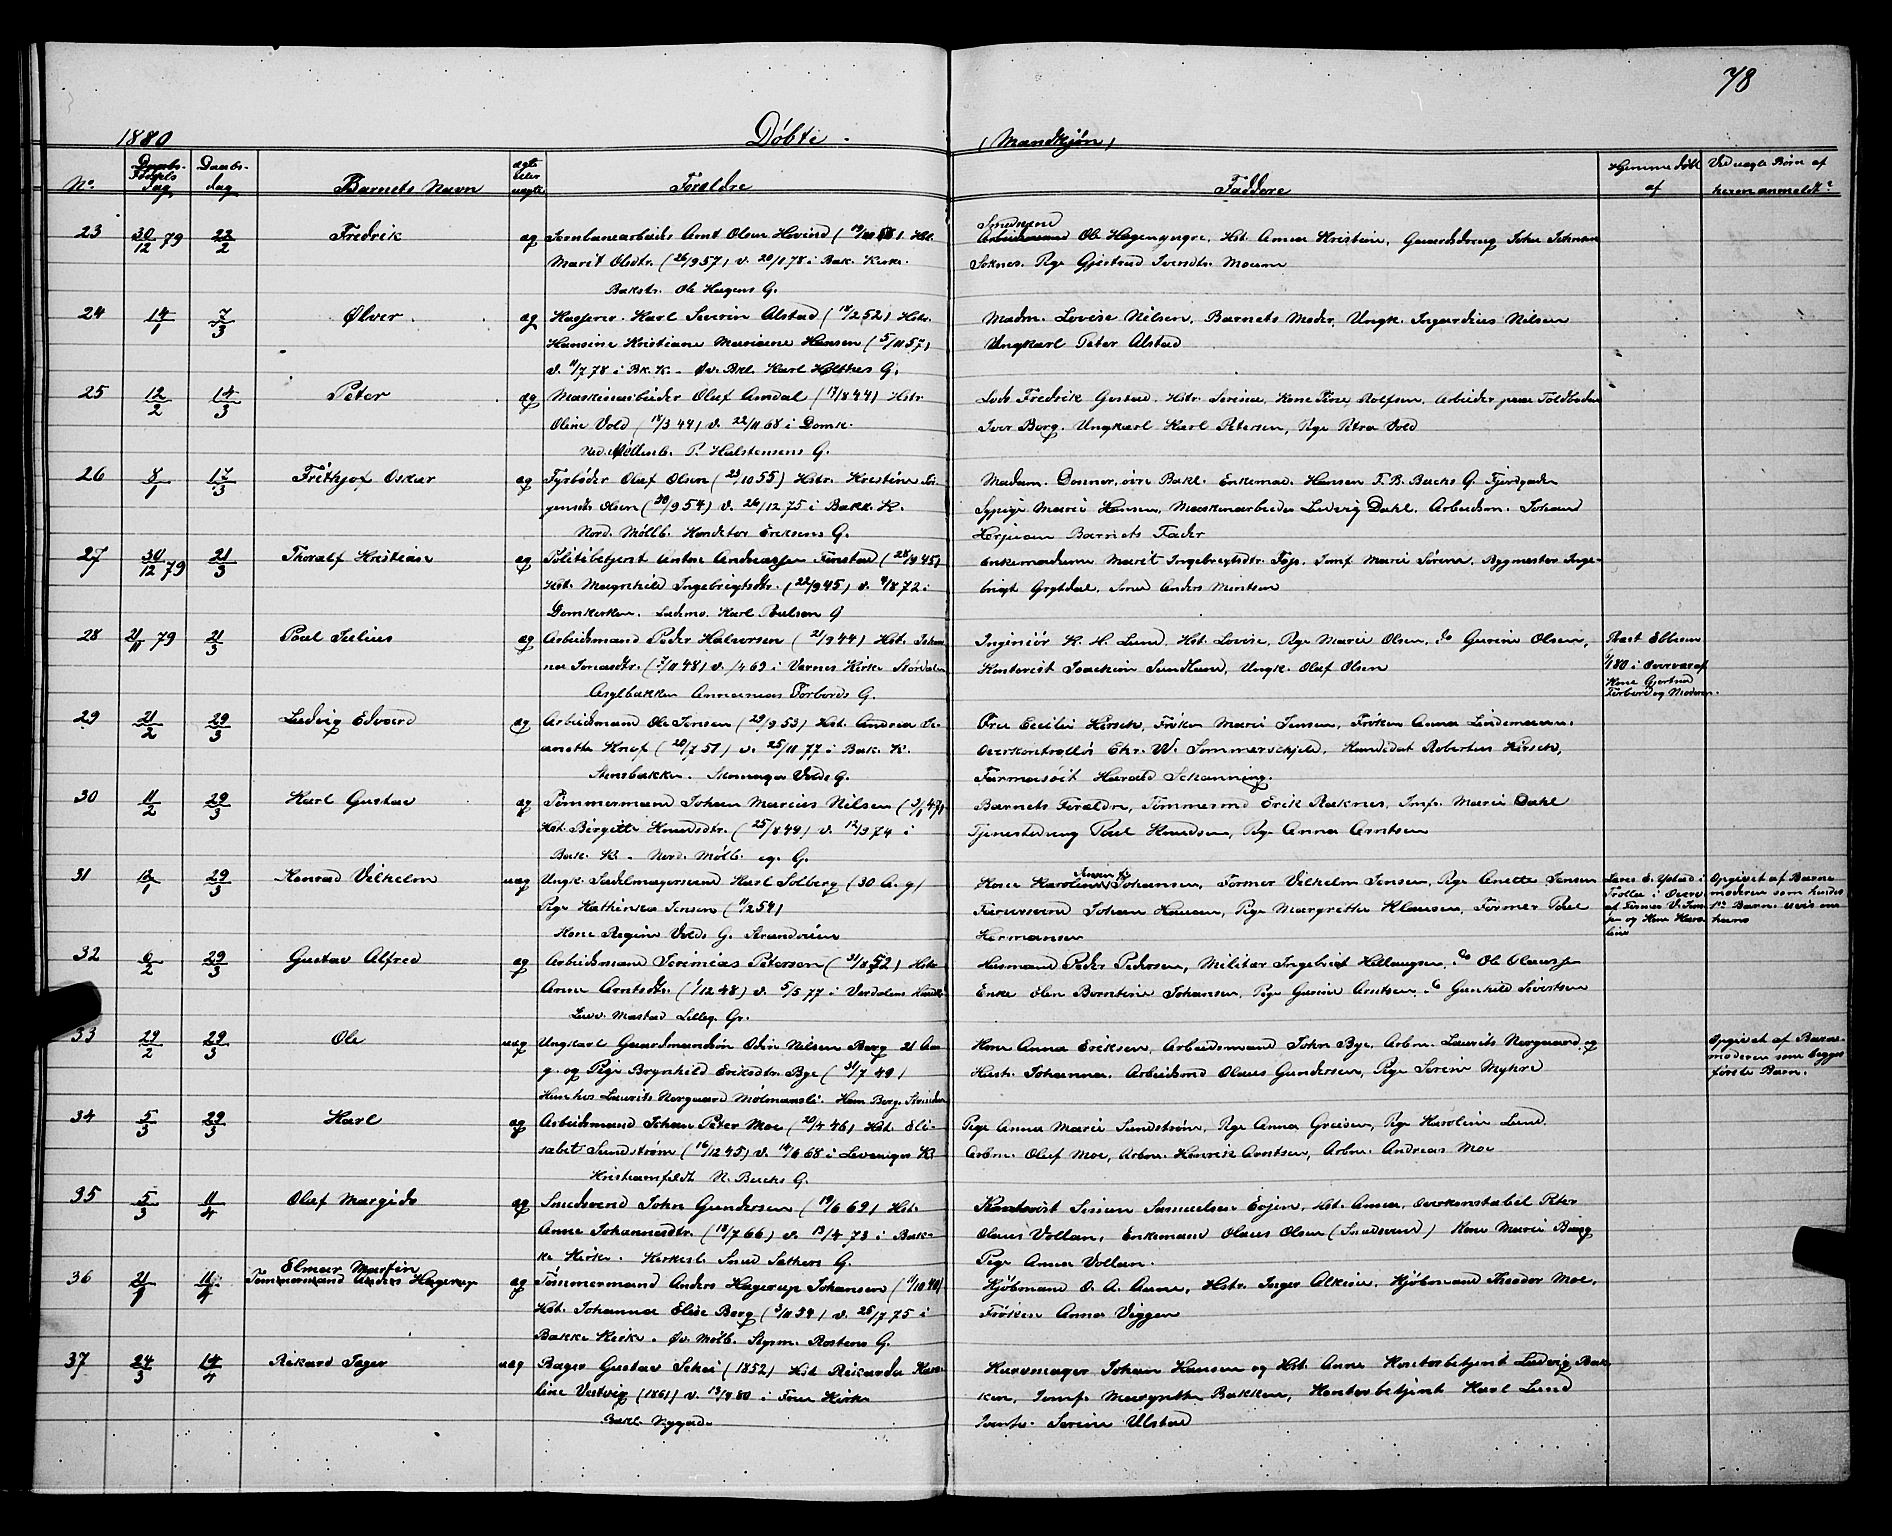 78
1880 Døbte. (Mandkjøn)
No. Fødsels dag Daabs-dag Barnets Navn ægte eller uægte Forældre Faddere Hjemmedøbt af Ved uægte Børn af hvem anmeldt?
23 30/12 79 22/2 Fredrik æg Arnt Olsen Hovind Hst.
Marit Olsdtr. (26/9 57) v. 20/11 78 i Bak. Kirke
Bakstr. Ole Hagens G.
Smedsvend
Ole Hagengygre, Hst. Anna Kristine, Gaardsdreng John Johnsen
Soknes. Pige Gjertrud Iversdtr. Moum
24 14/1 7/3 Ølver æg Karl Severin Alstad (14/2 52) Hstr.
Hansine Kristiane Hansen (5/11 57)
v. 11/7 78 i Bk. K. Øv. Bkl. Karl Holthes G.
Madm. Lovise Nilsen, Barnets Moder, Ungk. Nilsen
Ungkarl Peter Alstad
25 12/2 14/3 Peter æg Maskinarbeider Olaf Aundal (17/1 844) Hstr.
Oline Vold (14/3 44) v. 22/11 68 i Domk.
Ned. Møllenb. P. Halstensens G.
Lods Fredrik Gustad, Hstr. Serine, Kone Rolfsen, Arbeider paa Toldboden
Iver Borg, Ungkarl Karl Petersen, Pige Petra Vold
26 8/1 17/3 Frithjof Oskar æg Fyrbøder Olaf Olsen (23/10 55) Hstr. Kristine
Olsen (30/9 54) v. 26/12 75 i Bakk. K.
Nord. Møllb. Eriksens G.
Madam. øvre Bakl. Enkemad. Hansen F. B. Bucks G. Fjordgaden
Sypige Marie Hansen, Maskinarbeider Ludvig Dahl, Arbeidsm. Johand
Barnets Fader
27 30/12 79 21/3 Thoralf Kristian æg Politibetjent Anton Andreassen Finstad
Hst. Magnhild Ingebrigtsdtr. (22/9 45) v. 9/8 72 i
Domkirken. Karl Poulsen G
Enkemadame Marit Ingebrigtsdtr. Jomf. Marie Sørene, Bygmester Inge-
brigt Grytdal, Smed Anders
28 21/11 79 21/3 Paul Julius æg Arbeidsmand Peder Halvorsen (21/9 44) Hst. Johan-
na Jonasdtr. (7/11 48) v. /4 69 i Værnes Kirke Stordalen
Asylbakken Annanias Forbords G.
Ingeniör K. H. Lund, Hst. Lovise, Pige Marie Olsen, do Gurine Olsen,
Kontorist Joackim Sundlund, Ungk. Olaf Olsen
Præst Ebbesen
1/1 80 i Overvær af
Kone Gjertrud
Forbord og Moderen.
29 21/2 29/3 Ludvig Edvard æg Arbeidsmand Ole Jensen (29/9 53) Hst. Andrea Je-
anette Knof (20/7 57) v. 25/11 77 i Bak. K.
Stensbakken. Volds G.
Fru Cecilie Hirsch, Frøken Marie Jensen, Frøken Anna Lindemann.
Overkontrollør Chr. W. Sommerschjeld, Kandidat Robertus Hirsch,
Farmasöit Harald Schanning.
30 11/2 29/3 Karl Gustav æg Tømmermand Johan Marius Nilsen
Hst. Birgitte Knudsdtr. (25/8 49) v. 12/3 74 i
Bak. K. Nord. Mølb. eg. G.
Barnets Forældre, Tømmermd Erik Raknes, Jmf. Marie Dahl
Tjenestedreng Paul Knudsen, Pige Anna Arntsen
31 12/1 29/3 Konrad Vilhelm uæg Ungk. Sadelmagersvend Karl Solberg (30 A. g)
Pige Kathinka Jensen (11/2 54)
Kone Regine Volds G. Strandveien
Kone Karoline Johansen, Former Vilhelm Jensen, Pige Anette Jensen
Farversvend Johan Hansen, Pige Margrethe Klausen, Former Paul
Hermansen
af Former V. Jen-
sen og Kone Karo-
line
Opgivet af Barne-
moderen som hendes
1ste Barn.
32 6/2 29/3 Gustav Alfred æg Arbeidsmand Jeremias Petersen (31/8 52) Hst.
Anne Arntsdtr. (1/12 48) v. 5/5 77 i Værdalens
Mostad Lilleg. Gr.
Husmand Peder Pedersen, Militær Ingebrigt Hellaugsen, do Ole Olaussen
Enke Olen Berntine Johansen, Pige Gurine Arntsen, do Gunhild Sivertsen
33 29/2 29/3 Ole uæg Ungkarl Gaardmandsøn Odin Nilsen Berg 21 Aar
g. og Pige Brynhild Eriksdtr. Bye (31/7 49)
Hun hos Laurits Norgaard Møllmansli. Ham Berg. Strinden
Kone Anna Eriksen, Arbeidsmand John Bye, Arbm. Laurits Norgaard og
Hust. Johanna. Arbeidsmd Olaus Gundersen, Pige Serine Myhre
Opgivet af Barne-
moderen som begges
første Barn.
34 5/3 29/3 Karl æg Arbeidsmand Johan Peter Moe (20/4 46) Hst. Eli-
sabet Sundstrøm (16/12 45) v. 14/6 68 i Levanger K.
Kristiansfeldt N. Bucks G.
Pige Anna Marie Sundstrøm, Pige Anna Greisen, Pige Karoline Lund
Arbm. Oluf Moe, Arbm. Henrik Arntsen, Arbm. Andreas Moe
35 5/3 11/4 Olaf Margido æg Smedsvend John Gundersen (19/6 69) Hst.
Anne Johannesdtr. (18/7 66) v. 13/4 73 i Bak-
ke Kirke. Kirkesl. Smed Sathers G.
Kontorist Simon Samuelsen Evjen, Hst. Anna, Overkonstabel Peter
Olaus Vollan, Enkemand Olaus Olsen (Smedsvend) Kone Marie Berg
Pige Anna Vollan.
36 21/1 11/4 Elmar Martin
Tømmermand Anders Hagerup
æg Tømmermand Anders Hagerup Johansen (11/10 40)
Hst. Johanna Elise Berg (3/11 39) v. 25/7 75 i
Bakke Kirke. Øv. Mølb. Styrm. Rostens G.
Kjøbmand O. A. Aune, Hstr. Inger Alkine, Kjøbmand Theodor Moe,
Frøken Anna Viggen
37 24/3 14/4 Rikard Jager uæg Bager Gustav Schei (1852) Hst Rikarda Karo-
line Vestvig (1861) v. 13/4 80 i Frue Kirke
Bakl. Nygade
Kurvmager Johan Hansen og Hst. Anne Kontorbetjent Ludvig Bak-
ken, Jomf. Margrethe Bakken, Kontorbetjent Karl Lund
Jomfr. Serine Ulstad